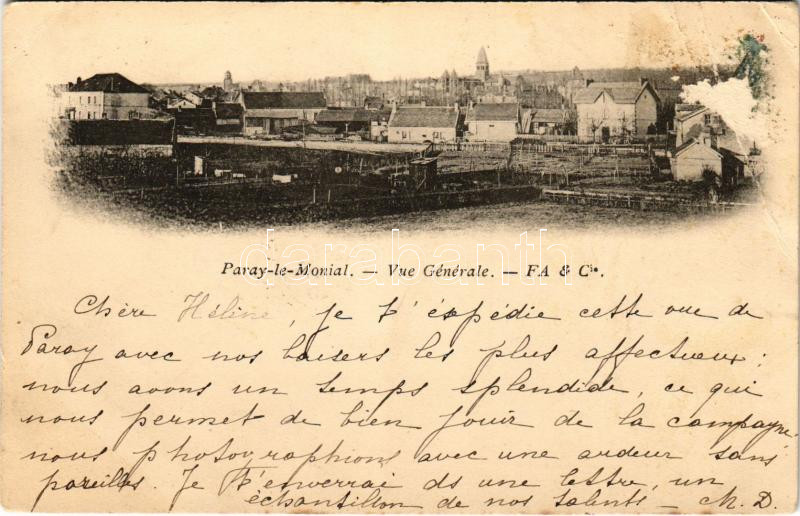 Paray-le-Monial. — Vue Générale. — F.A & Cie.
darabanth
Chère Héline, je t'éxpédie cette vue de
Paray avec nos baisers les plus affectueux :
nous avons un temps splendide, ce qui
nous permet de bien jouir de la campagne.
nous photographions avec une ardeur sans
pareilles. Je t'enverrai ds une lettre, un
échantillon de nos talents — M. D.